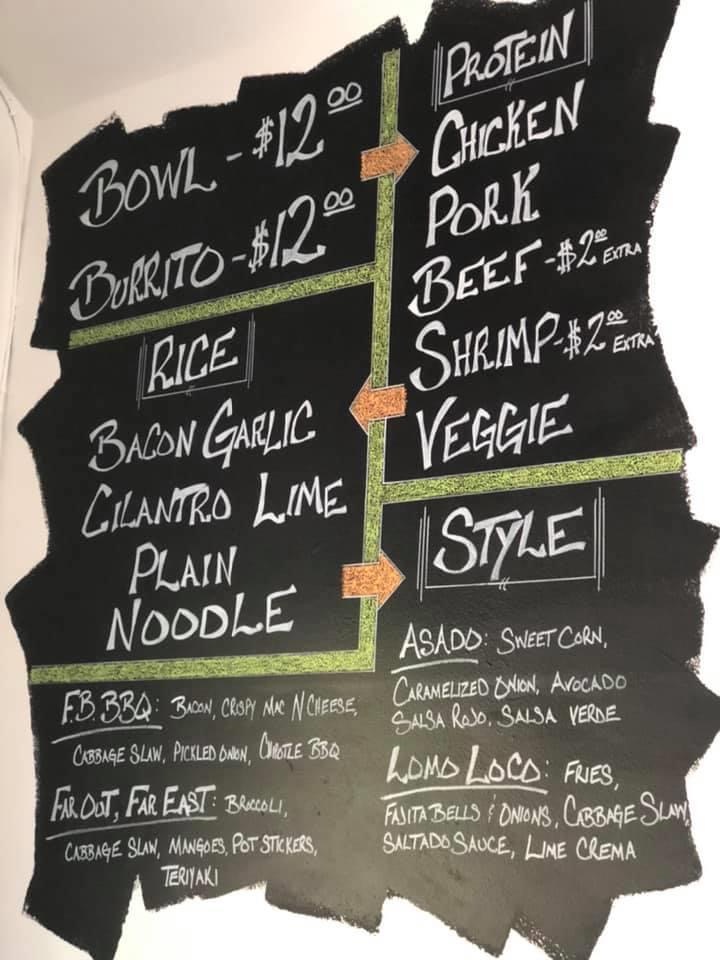 BOWL - $12.00
BURRITO - $12.00
PROTEIN
CHICKEN
PORK
BEEF - $2.00 EXTRA
SHRIMP - $2.00 EXTRA
VEGGIE
RICE
BACON GARLIC
CILANTRO LIME
PLAIN
NOODLE
STYLE
ASADO: SWEET CORN,
CARAMELIZED ONION, AVOCADO
SALSA ROJO, SALSA VERDE
LOMO LOCO: FRIES,
FAJITA BELLS & ONIONS, CABBAGE SLAW,
SALTADO SAUCE, LIME CREMA
F.B. BBQ: BACON, CRISPY MAC N CHEESE,
CABBAGE SLAW, PICKLED ONION, CHIPOTLE BBQ
FAR OUT, FAR EAST: BROCCOLI,
CABBAGE SLAW, MANGOES, POT STICKERS,
TERIYAKI